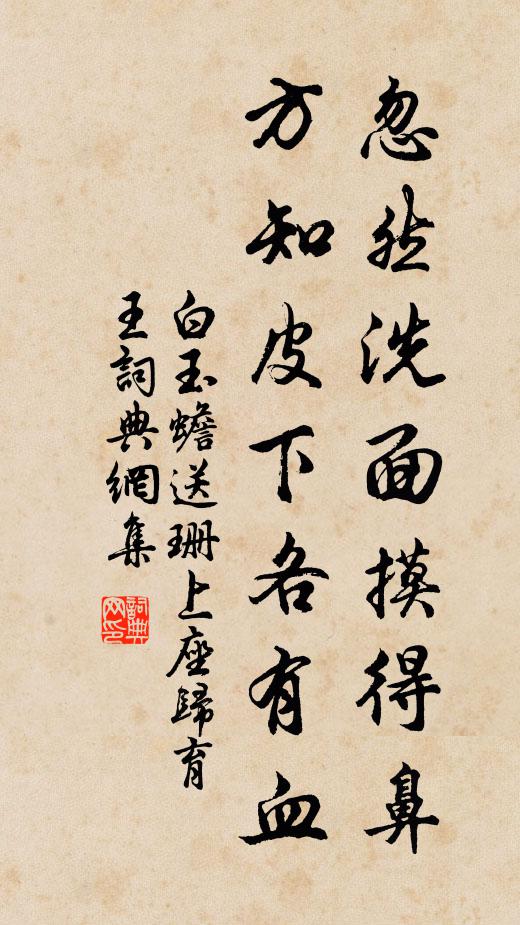 忽然洗面摸得鼻
方知皮下各有血
白玉蟾送珊上座歸育
王詞典網集
詞典网印